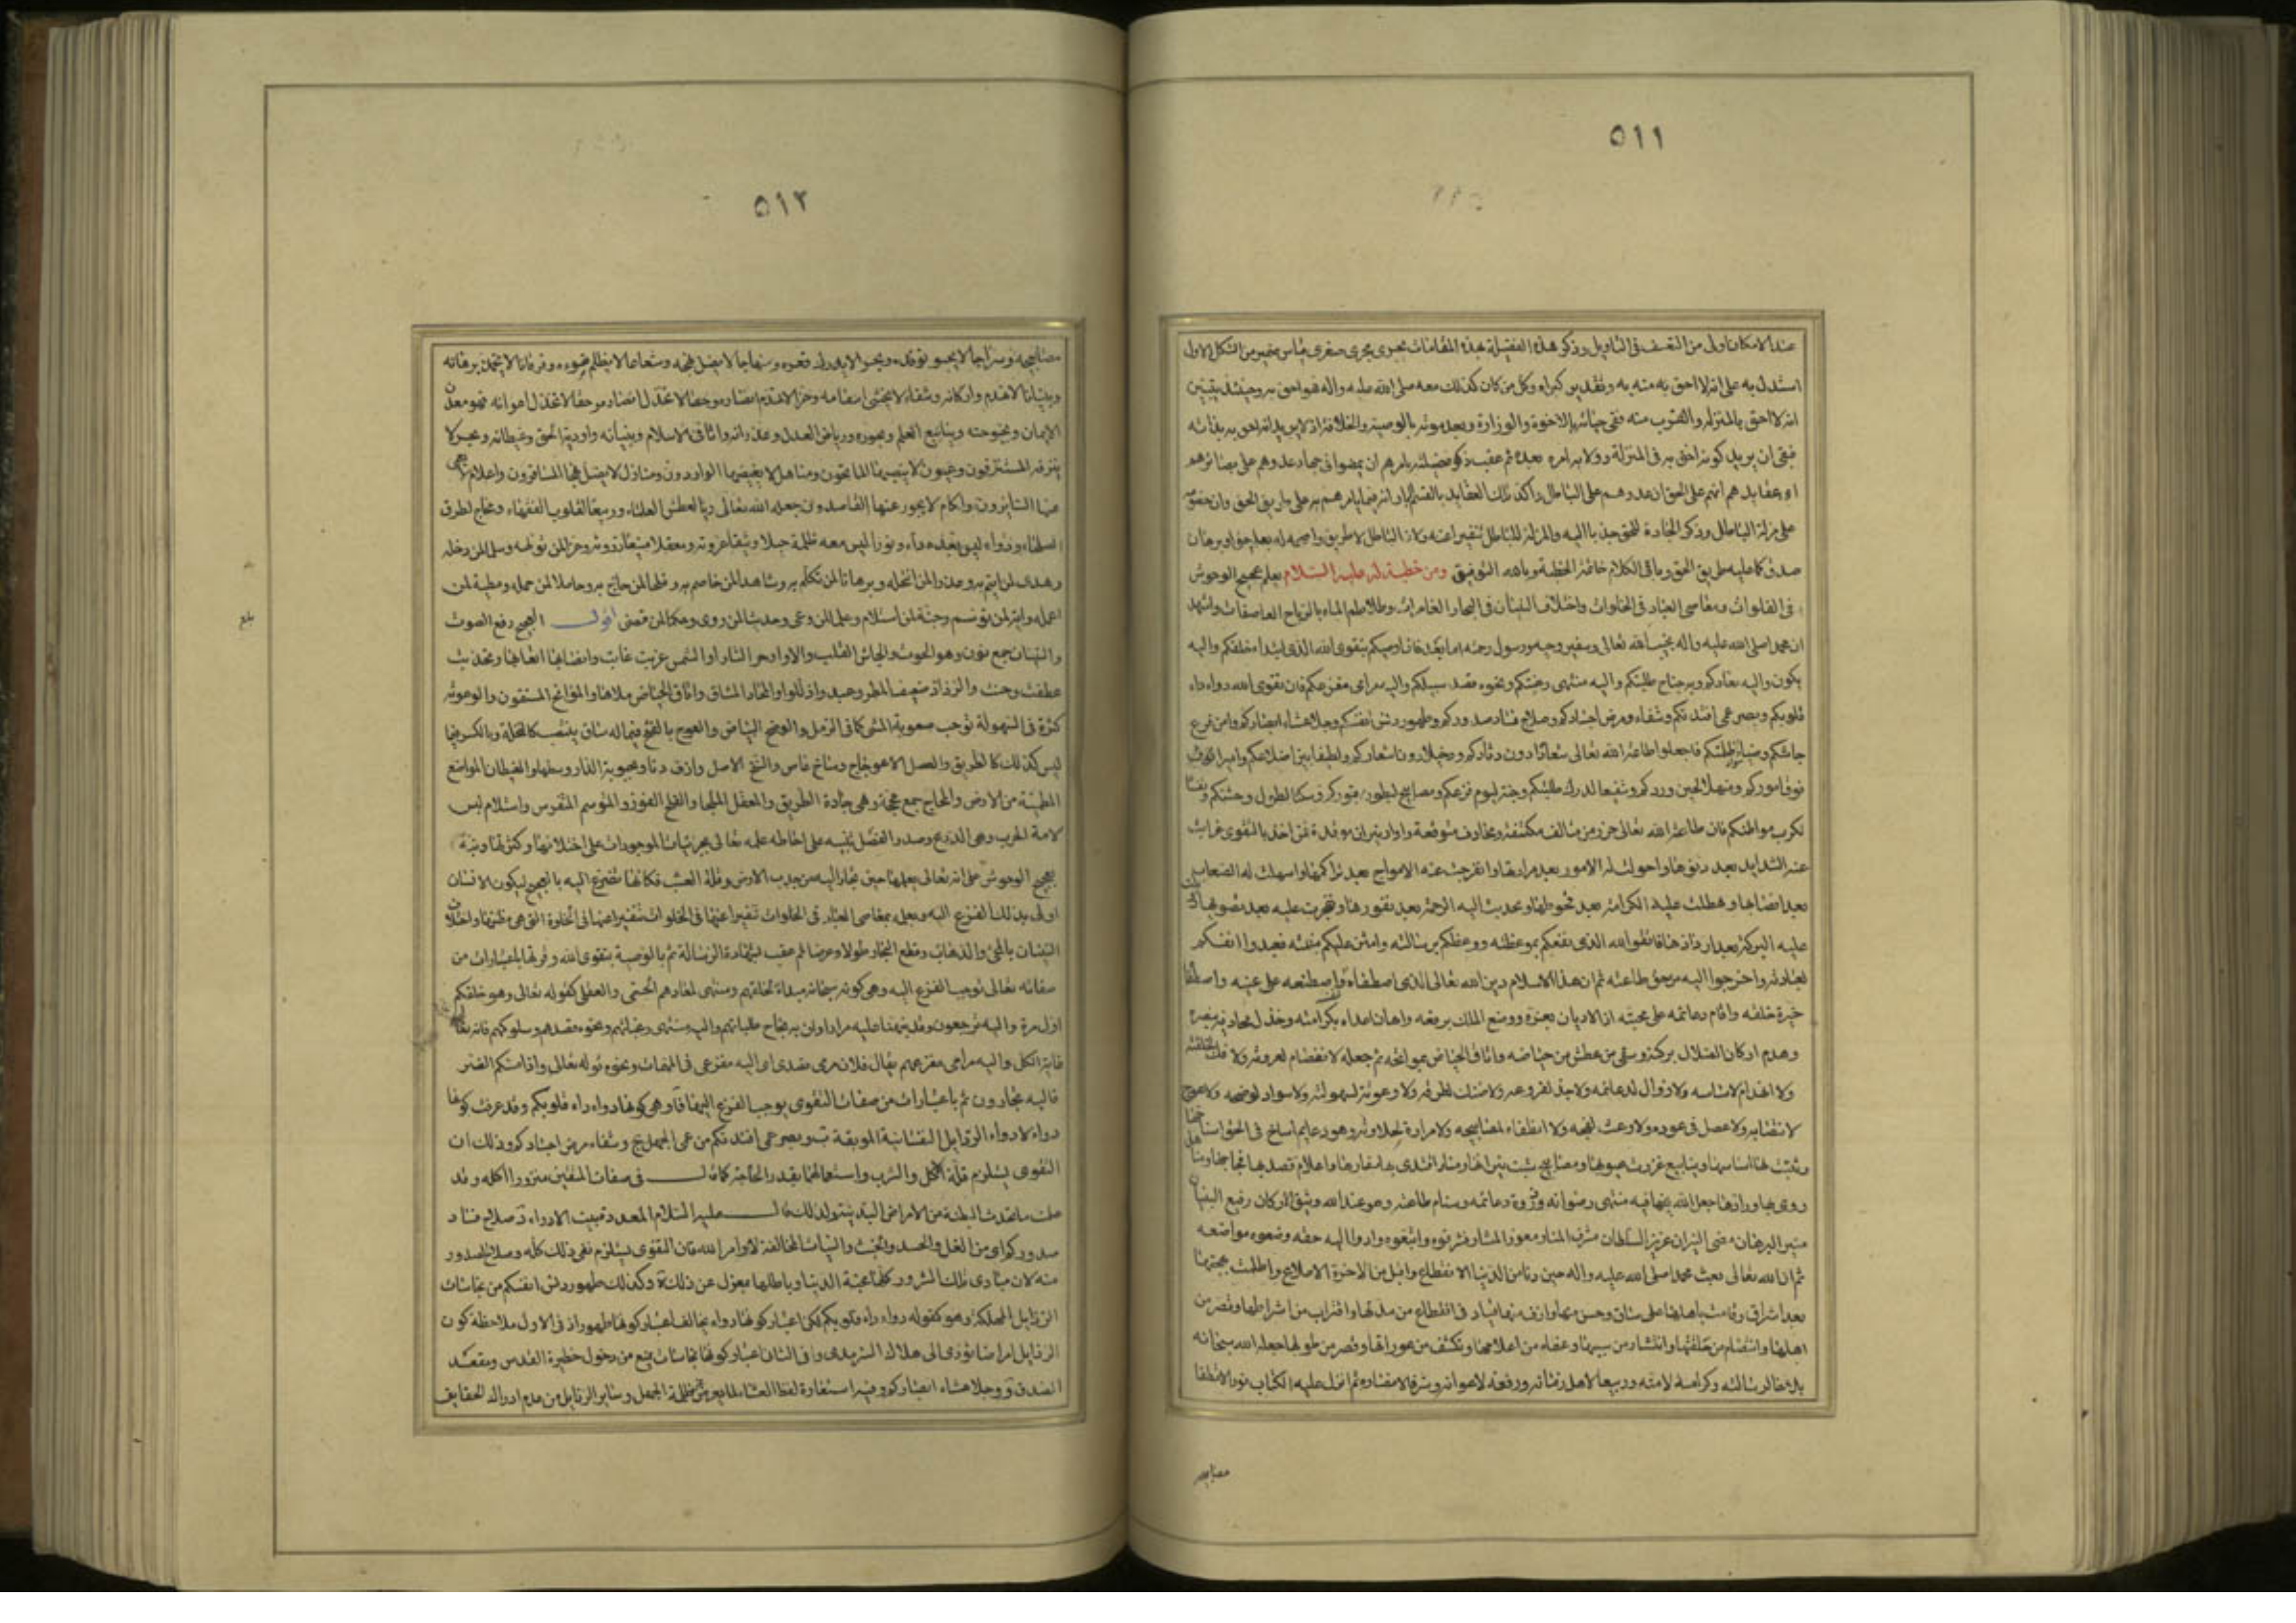 ٥١١
عند الامكان اولى من التعسف فى التاويل وذكر هذه الفضيلة بهذه المقامات يجرى مجرى صغرى قياس ضمير من الشكل الاول
استدل به على انه لا احق به منه به وتقدير كبراه وكل من كان كذلك معه صلى الله عليه واله فهو احق به وحينئذ يتبين
انه لا احق بالمنزلة والقرب منه ففى حياته بالاخوة والوزارة وبعد موته بالوصية والخلافة اذ لا يريد انه احق به بذاته
فبقى ان يريد كونه احق به فى المنزلة وولاية امره بعده ثم عقب ذكر فضيلته بامرهم ان يمضوا فى جهاد عدوهم على بصائرهم
اى عقايدهم انهم على الحق وان عدوهم على الباطل واكد تلك العقايد بالقسم البار انه فيما يامرهم به على طريق الحق وان خصومه
على مزلة الباطل وذكر الجادة للحق جذبا اليه والمزلة للباطل تنفيرا عنه ولان الباطل لا طريق واضحة له بعلم حق او برهان
صدق كما عليه طريق الحق وباقى الكلام خاتمة الخطبة وبالله التوفيق ومن خطبة له عليه السلام يعلم عجيج الوحوش
فى الفلوات ومعاصى العباد فى الخلوات واختلاف النينان فى البحار الغامرات وتلاطم الماء بالرياح العاصفات واشهد
ان محمدا صلى الله عليه واله نجيب الله تعالى وسفير وحيه ورسول رحمته اما بعد فانا اوصيكم بتقوى الله الذى ابتدا خلقكم واليه
يكون واليه معادكم وبه نجاح طلبتكم واليه منتهى رغبتكم ونحوه قصد سبيلكم واليه مرامى مفزعكم فان تقوى الله دواء داء
قلوبكم وبصر عمى افئدتكم وشفاء مرض اجسادكم وصلاح فساد صدوركم وطهور دنس انفسكم وجلاء غشاء ابصاركم وامن فزع
جاشكم وضياء سواد ظلمتكم فاجعلوا طاعة الله تعالى شعارا دون دثاركم ودخيلا دون شعاركم ولطيفا بين اضلاعكم واميرا
فوق اموركم ومنهلا لحين وردكم وشفيعا لدرك طلبتكم وجنة ليوم فزعكم ومصابيح لبطون قبوركم وسكنا لطول وحشتكم ونفسا
لكرب مواطنكم فان طاعة الله تعالى حرز من متالف مكتنفة ومخاوف متوقعة واوار نيران موقدة فمن اخذ بالتقوى عزبت
عنه الشدايد بعد دنوها واحلولت له الامور بعد مرارتها وانفرجت عنه الامواج بعد تراكمها واسهلت له الصعاب
بعد انصابها وهطلت عليه الكرامة بعد قحوطها وتحدبت اليه الرحمة بعد نفورها وتفجرت عليه بعد نضوبها
عليه البركة بعد ارذاذها فاتقوا الله الذى نفعكم بموعظته ووعظكم برسالته وامتن عليكم بنعمته فعبدوا انفسكم
لعبادته واخرجوا اليه من حق طاعته ثم ان هذا الاسلام دين الله تعالى الذى اصطفاه واصطنعه على عينه واصطفاه
خيرة خلقه واقام دعائمه على محبته اذل الاديان بعزه ووضع الملل برفعه واهان اعداءه بكرامته وخذل محاديه بنصره
وهدم اركان الضلال بركنه وسقى من عطش من حياضه واتاق الحياض بمواتحه ثم جعله لا انفصام لعروته ولا فك لحلقته
ولا انهدام لاساسه ولا زوال لدعائمه ولا جذ لفروعه ولا ضنك لطرقه ولا وعوثة لسهولته ولا سواد لوضحه ولا عوج
لانتصابه ولا عصل فى عوده ولا وعث لفجه ولا انطفاء لمصابيحه ولا مرارة لحلاوته وهو دعايم اساخ فى الحق اسناخها
وثبت لها اساسها وينابيع غزرت عيونها ومصابيح شبت نيرانها ومنار اقتدى بها سفارها واعلام قصد بها فجاجها ومناهل
روى بها ورادها جعل الله فيها منتهى رضوانه وذروة دعائمه وسنام طاعته وهو عند الله وثيق الاركان رفيع البنيان
منير البرهان مضى النيران عزيز السلطان مشرف المنار معوز المثار فشرفوه واتبعوه وادوا اليه حقه وضعوه مواضعه
ثم ان الله تعالى بعث محمدا صلى الله عليه واله حين دنا من الدنيا الانقطاع واقبل من الاخرة الاطلاع واظلمت بهجتها
بعد اشراق وقامت باهلها على ساق وخشن منها وازف منها قياد فى انقطاع من مدتها واقتراب من اشراطها وتصرم من
اهلها وانفصام من حلقتها وانتشار من سببها وعفاء من اعلامها وتكشف من عوراتها وقصر من طولها جعله الله سبحانه
بلاغا لرسالته وكرامة لامته وربيعا لاهل زمانه ورفعة لاعوانه وشرفا لانصاره ثم انزل عليه الكتاب نورا لا تطفا
مصابيحه
٥١٢
مصابيحه وسراجا لا يخبو توقده وبحرا لا يدرك قعره ومنهاجا لا يضل نهجه وشعاعا لا يظلم ضوءه وفرقانا لا يخمد برهانه
وبنيانا لا تهدم اركانه وشفاء لا تخشى اسقامه وعزا لا تهزم انصاره وحقا لا تخذل اعوانه فهو معدن
الايمان وبحبوحته وينابيع العلم وبحوره ورياض العدل وغدرانه واثافى الاسلام وبنيانه واودية الحق وغيطانه وبحر لا
ينزفه المستنزفون وعيون لا ينضبها الماتحون ومناهل لا يغيضها الواردون ومنازل لا يضل نهجها المسافرون واعلام لا يعمى
عنها السايرون واكام لا يجوز عنها القاصدون جعله الله تعالى ريا لعطش العلماء وربيعا لقلوب الفقهاء ومحاج لطرق
الصلحاء ودواء ليس بعده داء ونورا ليس معه ظلمة وحبلا وثيقا عروته ومعقلا منيعا ذروته وعزا لمن تولاه وسلما لمن دخله
وهدى لمن ائتم به وعذرا لمن انتحله وبرهانا لمن تكلم به وشاهدا لمن خاصم به وفلجا لمن حاج به وحاملا لمن حمله ومطية لمن
اعمله واية لمن توسم وجنة لمن استلام وعلما لمن وعى وحديثا لمن روى وحكما لمن قضى اقول العجيج رفع الصوت
والنينان جمع نون وهو الحوت والجاش القلب والاوار حر النار او الشمس عزبت غابت وانصابها اتعابها وتحدبت
عطفت وحنت والرذاذ ضعيف المطر وعبدوا ذللوا والمحاد المشاق واتاق الحياض ملاها والمواتح المستقون والوعوثة
كثرة فى السهولة توجب صعوبة المشى كما فى الرمل والوضح البياض والعوج بالفتح فيما له ساق ينتصب كالنخلة وبالكسر فيما
ليس كذلك كالطريق والعصل الاعوجاج وساخ غاص والسنخ الاصل وازف دنا وبحبوبة الدار وسطها والغيطان المواضع
المطمئنة من الارض والمحاج جمع محجة وهى جادة الطريق والمعقل الملجا والفلج الفوز والمتوسم المتفرس واستلام لبس
لامة الحرب وهى الدرع وصدر الفصل تنبيه على احاطة علمه تعالى بجزئيات الموجودات على اختلافها وكثرتها ونبه
بعجيج الوحوش على انه تعالى يعلمها حين تجار اليه من جدب الارض وقلة العشب فكانها تتضرع اليه بالعجيج ليكون الانسان
اولى بذلك الفزع اليه وبعلمه بمعاصى العباد فى الخلوات تنفيرا عنها فى الخلوة التى هى مظنتها واختلاف
النينان بالمجئ والذهاب وقطع البحار طولا وعرضا ثم عقب بشهادة الرسالة ثم بالوصية بتقوى الله وقرنها باعتبارات من
صفاته تعالى توجب الفزع اليه وهى كونه سبحانه مبدا لخلقهم ومنتهى لمعادهم الحسى والعقلى كقوله تعالى وهو خلقكم
اول مرة واليه ترجعون وقد نبهنا عليه مرارا وان به نجاح طلباتهم واليه منتهى رغباتهم ونحوه قصدهم وسلوكهم فانه تعالى
غاية الكل واليه مرامى مفزعهم يقال فلان مرمى قصدى اى اليه مفزعى فى المهمات ونحوه قوله تعالى واذا مسكم الضر
فاليه تجارون ثم باعتبارات من صفات التقوى يوجب الفزع اليها فآ وهى كونها دواء داء قلوبكم وقد عرفت كونها
دواء لادواء الرذايل النفسانية الموبقة ب وبصر عمى افئدتكم من عمى الجهل ج وشفاء مرض اجسادكم وذلك ان
التقوى يستلزم قلة الاكل والشرب واستعمالها بقدر الحاجة كما قال فى صفات المتقين منزورا اكله وقد
علمت ما تحدث البطنة من الامراض البدنية ولذلك قال عليه السلام المعدة بيت الادواء د صلاح فساد
صدوركم اى من الغل والحسد والخبث والنيات المخالفة لاوامر الله فان التقوى يستلزم نفى ذلك كله وصلاح الصدور
منه لان مبادى تلك الشرور كلها محبة الدنيا وباطلها بمعزل عن ذلك ه وكذلك طهور دنس انفسكم من نجاسات
الرذايل المهلكة وهو كقوله دواء داء قلوبكم لكن اعتبار كونها دواء يخالف اعتبار كونها طهورا اذ فى الاول ملاحظة كون
الرذايل امراضا تؤدى الى هلاك السرمدى وفى الثانى اعتبار كونها نجاسات تمنع من دخول حظيرة القدس ومقعد
الصدق و وجلاء غشاء ابصاركم وفيه استعارة لفظ العشا لما يعرض من ظلمة الجهل وساير الرذايل من عدم ادراك الحقايق
بلغ